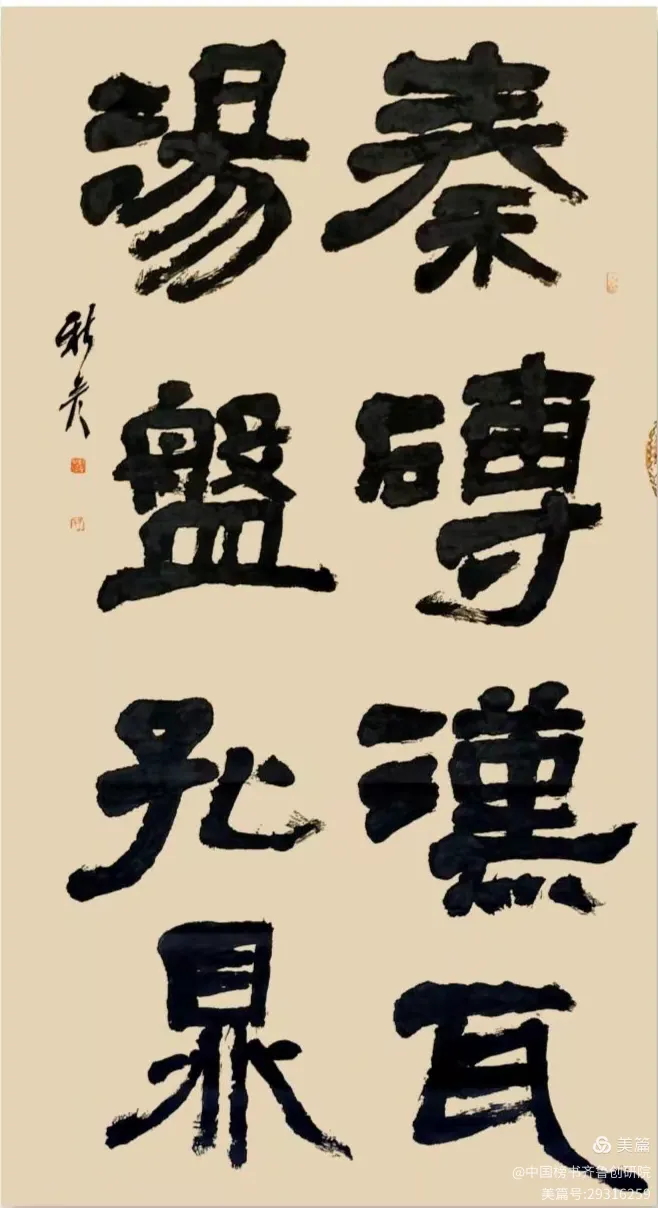 秦磚漢瓦
湯盤孔鼎
美篇
@中国榜书齐鲁创研院
美篇号:29316259